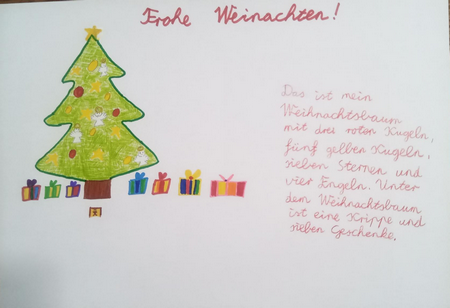 Frohe Weinachten!
Das ist mein
Weihnachtsbaum
mit drei roten Kugeln,
fünf gelben Kugeln,
sieben Sternen und
vier Engeln. Unter
dem Weihnachtsbaum
ist eine Krippe und
sieben Geschenke.